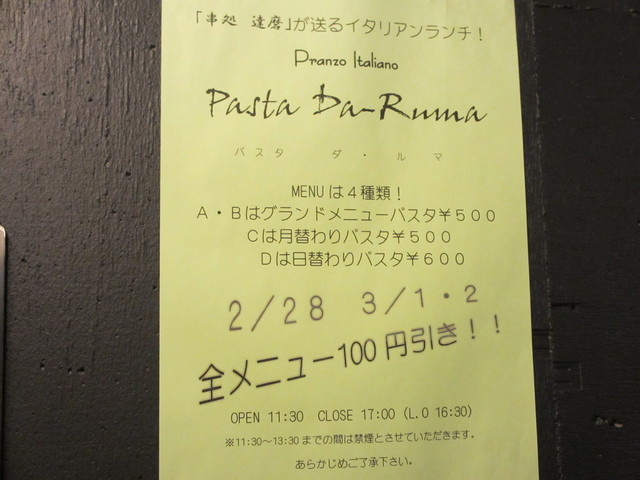 「串処 達磨」が送るイタリアンランチ！
Pranzo Italiano
Pasta Da-Ruma
パスタ ダ・ルマ
MENUは４種類！
Ａ・Ｂはグランドメニューパスタ￥５００
Ｃは月替わりパスタ￥５００
Ｄは日替わりパスタ￥６００
２／２８ ３／１・２
全メニュー100円引き！！
OPEN 11:30 CLOSE 17:00 (L.O 16:30)
※11:30～13:30までの間は禁煙とさせていただきます。
あらかじめご了承下さい。